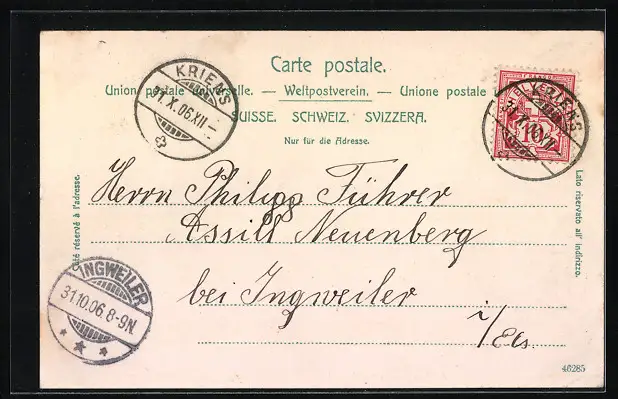 Carte postale.
Union postale universelle. — Weltpostverein. — Unione postale
SUISSE. SCHWEIZ. SVIZZERA.
Nur für die Adresse.
KRIENS
31.X.06.XII–
KRIENS
Côté réservé à l'adresse.
Lato riservato all' indirizzo.
Herrn Philipp Führer
Assist Neuenberg
bei Ingweiler
i/Els.
INGWEILER
31.10.06.8-9N.
46285